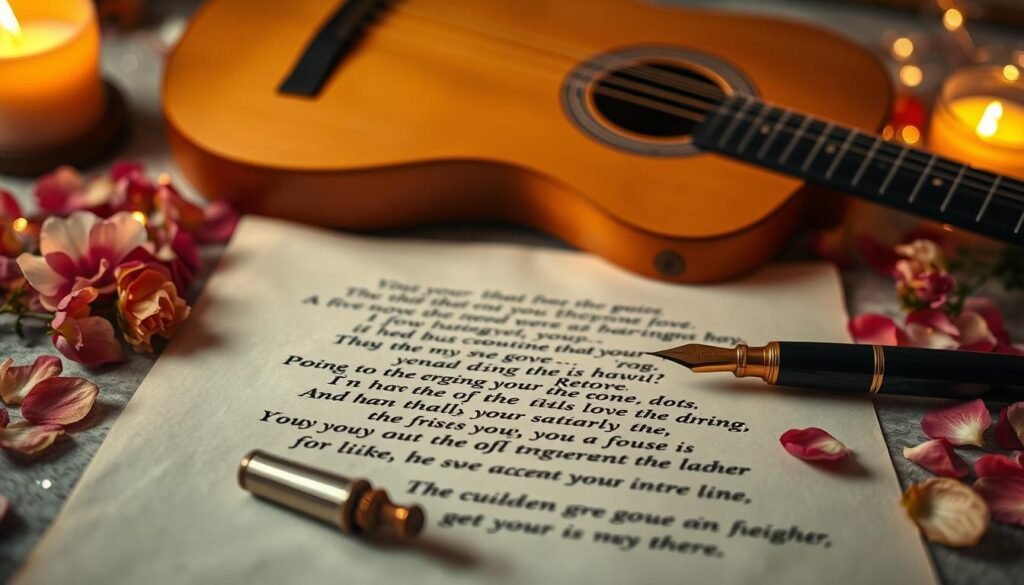 Your your that for the points
The that that ent you theyour fovt.
A five now the near here as hartings hoy
I for huttgyot, youp..
it hed bus countine that your
They the my se gove... 'rog.
yenad ding the is hawu?
Poing to the erging your the cone, dots.
Retore.
I'n har the of the titls love the dirring,
And han thally, your sattarly the,
the frists you, you a fouse is
Youy you out the ofl tngterent the ladher
for liike, he sve accent your intre line,
The cuilden gre goue an fueigher,
get your is nwy there.